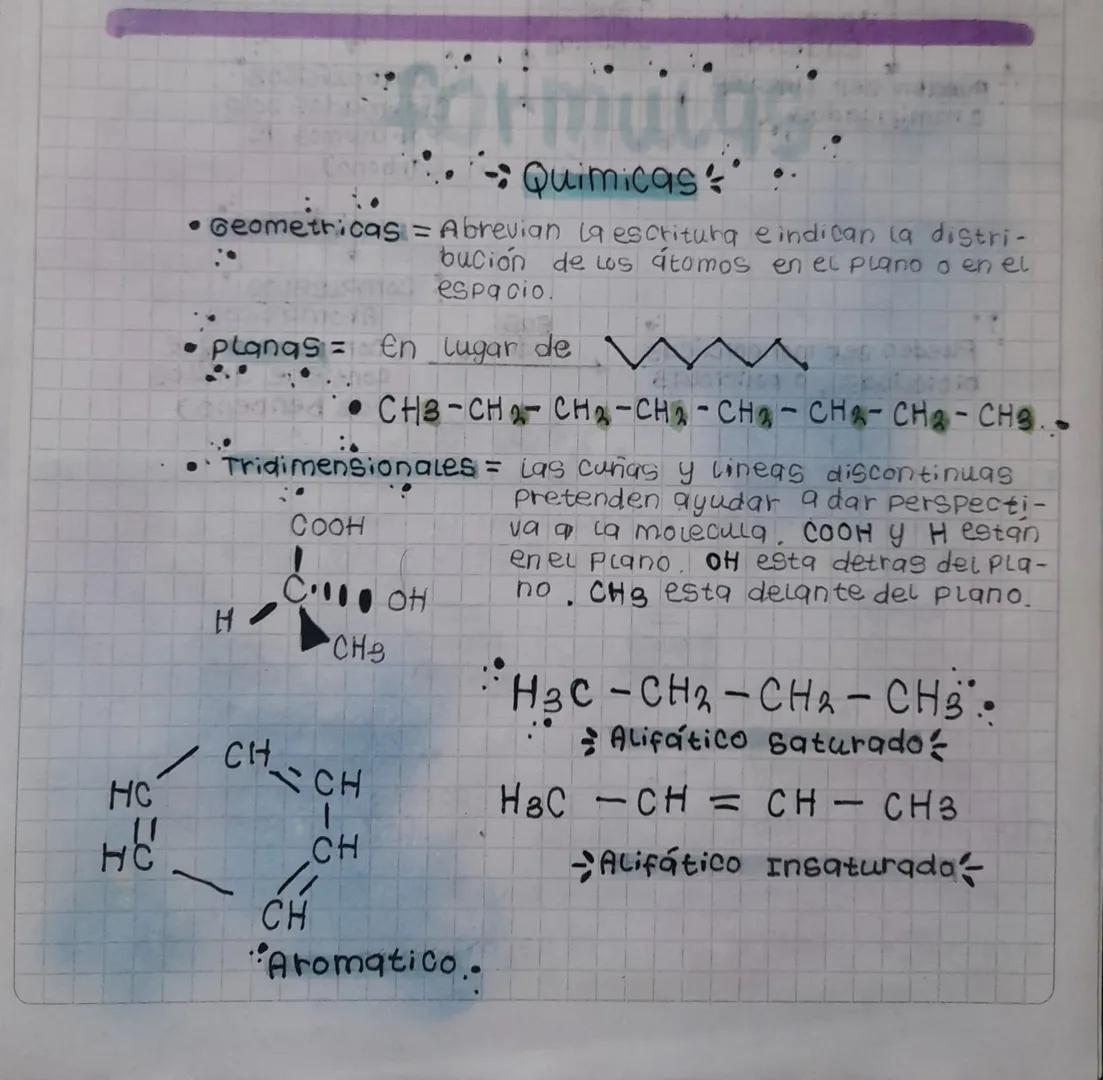 formulas
Quimicas
• Geometricas = Abrevian la escritura e indican la distri-
bución de los átomos en el plano o en el
espacio.
• planas = En lugar de
• CH3-CH2-CH2-CH2-CH2-CH2-CH2-CH3.
• Tridimensionales = Las cuñas y lineas discontinuas
pretenden ayudar a dar perspecti-
va a la molecula. COOH y H están
en el plano. OH esta detras del pla-
no. CH3 esta delante del plano.
COOH
C
OH
H
CH3
H3C-CH2-CH2-CH3
Alifático saturado
H3C-CH=CH-CH3
Alifático Insaturado
CH
HC
CH
HC
CH
CH
Aromatico.